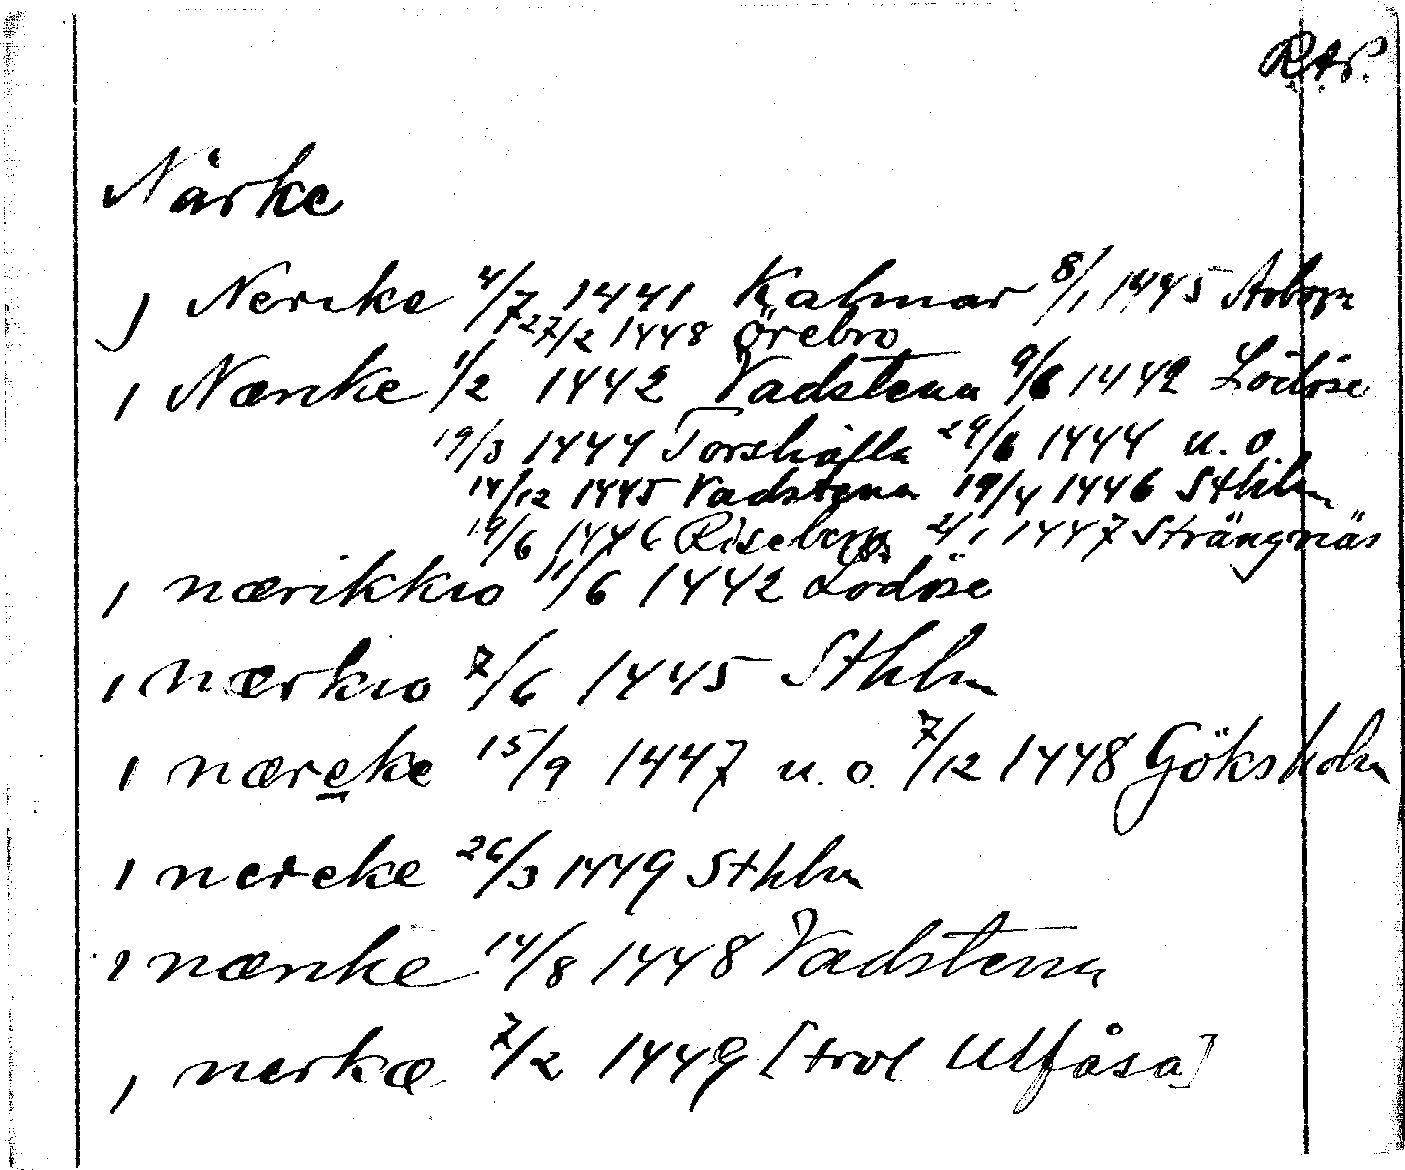 RAP.
Närke
j Nerike 4/7 1441 Kalmar 8/1 1445 Arboga
27/2 1448 Örebro
i Nærike 1/2 1442 Vadstena 9/6 1442 Lödöse
19/3 1444 Torshälla 29/6 1444 u. o.
14/12 1445 Vadstena 19/4 1446 Sthlm
19/6 1446 Riseberga 2/1 1447 Strängnäs
i nærikkio 11/6 1442 Lödöse
i nærkio 7/6 1445 Sthlm
i næreke 15/9 1447 u. o. 7/12 1448 Göksholm
i nereke 26/3 1449 Sthlm
i nærike 14/8 1448 Vadstena
i nerkæ 7/2 1449 [trol Ulfåsa]